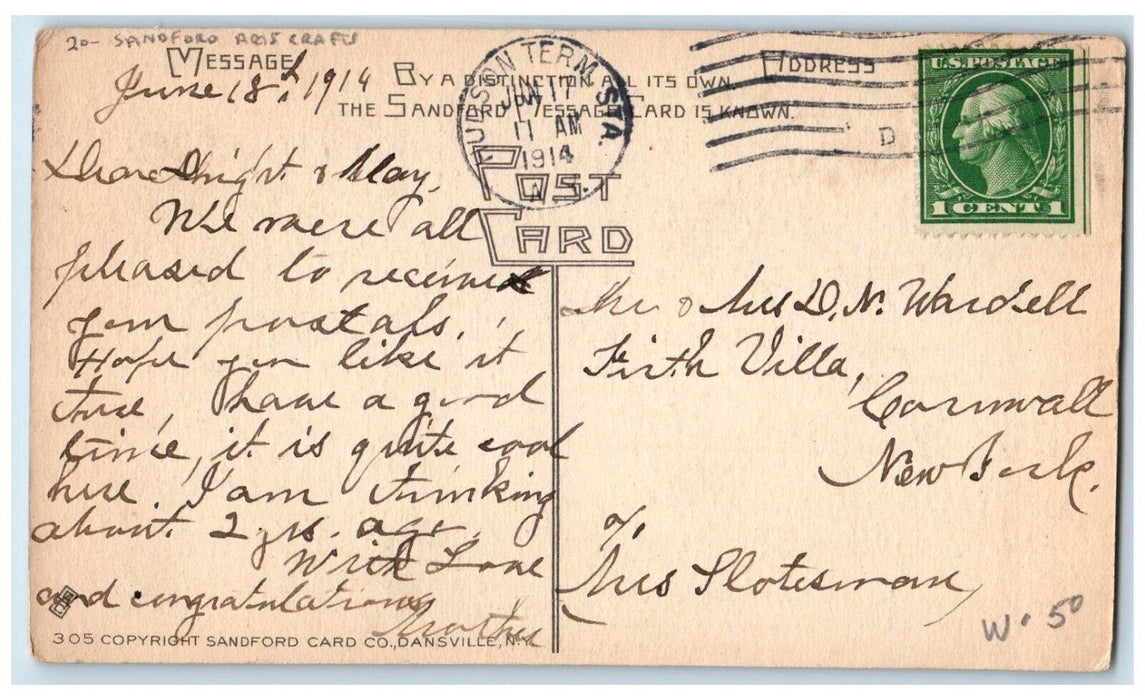 20- SANDFORD ARTS CRAFTS
MESSAGE
June 18, 1914
BY A DISTINCTION ALL ITS OWN,
THE SANDFORD MESSAGE CARD IS KNOWN.
ADDRESS
HUDSON TERM. STA.
JUN 17
11 AM
1914
N.Y.
D
U.S. POSTAGE
1 CENT 1
POST
CARD
Dear Dwight & May,
We were all
pleased to receive
your postals,
Hope you like it
there, & have a good
time, it is quite cool
here. I am thinking
about 2 yrs. ago,
With Love
and congratulations
Mother
305 COPYRIGHT SANDFORD CARD CO., DANSVILLE, N.Y.
Mr & Mrs D. N. Wardell
Firth Villa,
Cornwall
New York.
c/o
Mrs Slotesman,
W. 50